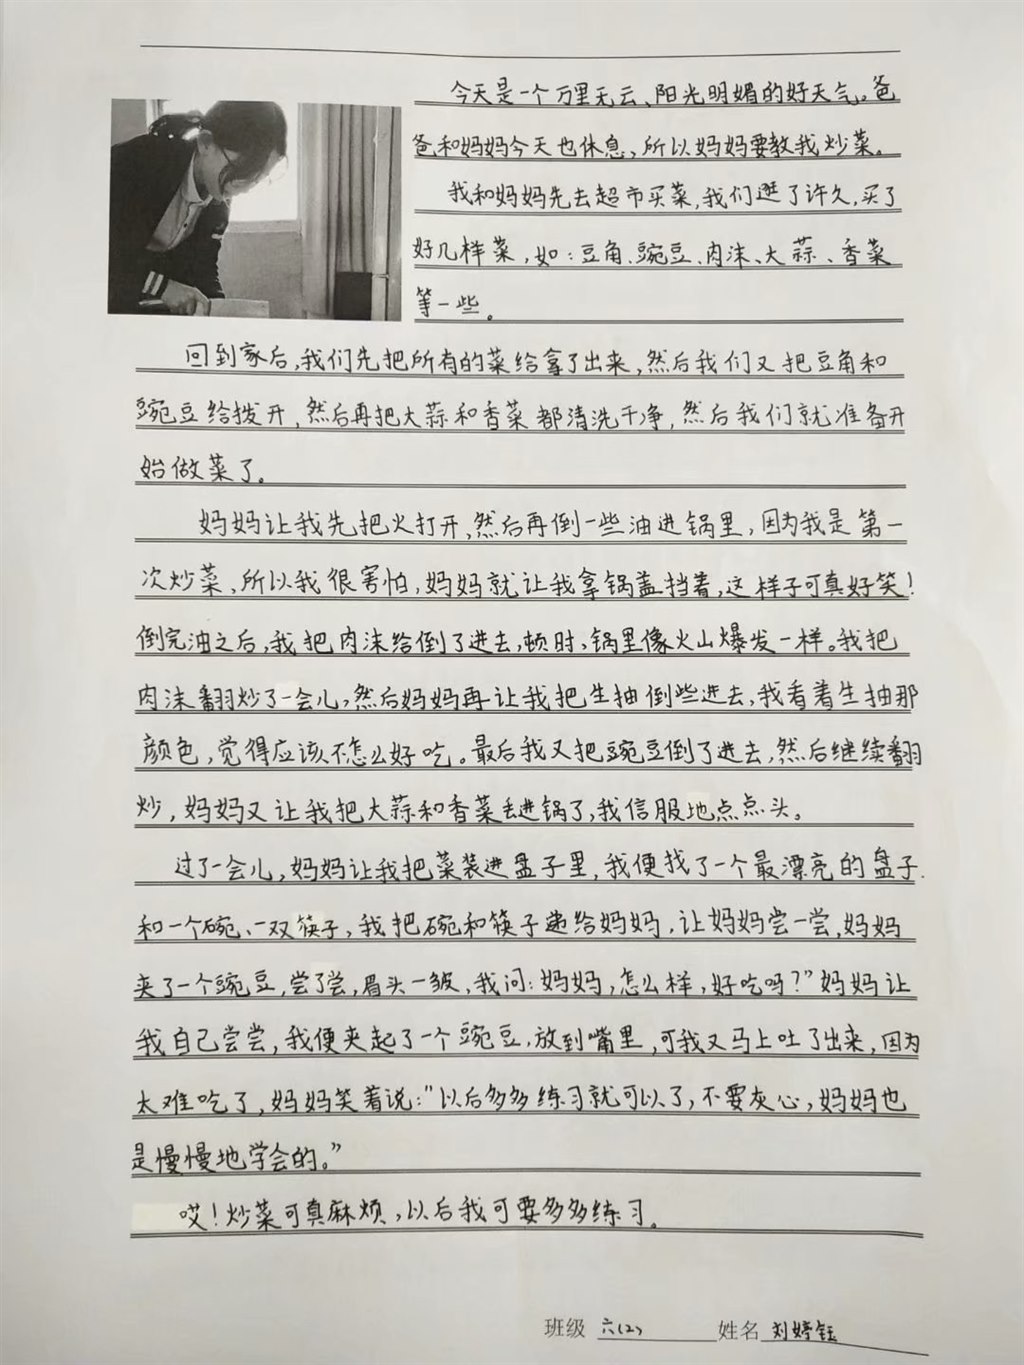 今天是一个万里无云、阳光明媚的好天气。爸
爸和妈妈今天也休息，所以妈妈要教我炒菜。
我和妈妈先去超市买菜，我们逛了许久，买了
好几样菜，如：豆角、豌豆、肉沫、大蒜、香菜
等一些。
回到家后，我们先把所有的菜给拿了出来，然后我们又把豆角和
豌豆给拨开，然后再把大蒜和香菜都清洗干净，然后我们就准备开
始做菜了。
妈妈让我先把火打开，然后再倒一些油进锅里，因为我是第一
次炒菜，所以我很害怕，妈妈就让我拿锅盖挡着，这样子可真好笑！
倒完油之后，我把肉沫给倒了进去，顿时，锅里像火山爆发一样。我把
肉沫翻炒了一会儿，然后妈妈再让我把生抽倒些进去，我看着生抽那
颜色，觉得应该不怎么好吃。最后我又把豌豆倒了进去，然后继续翻
炒，妈妈又让我把大蒜和香菜丢进锅了，我信服地点点头。
过了一会儿，妈妈让我把菜装进盘子里，我便找了一个最漂亮的盘子.
和一个碗、一双筷子，我把碗和筷子递给妈妈，让妈妈尝一尝，妈妈
夹了一个豌豆，尝了尝，眉头一皱，我问：妈妈，怎么样，好吃吗？”妈妈让
我自己尝尝，我便夹起了一个豌豆，放到嘴里，可我又马上吐了出来，因为
太难吃了，妈妈笑着说：“以后多多练习就可以了，不要灰心，妈妈也
是慢慢地学会的。”
哎！炒菜可真麻烦，以后我可要多多练习。
班级 六(2) 姓名 刘婷钰